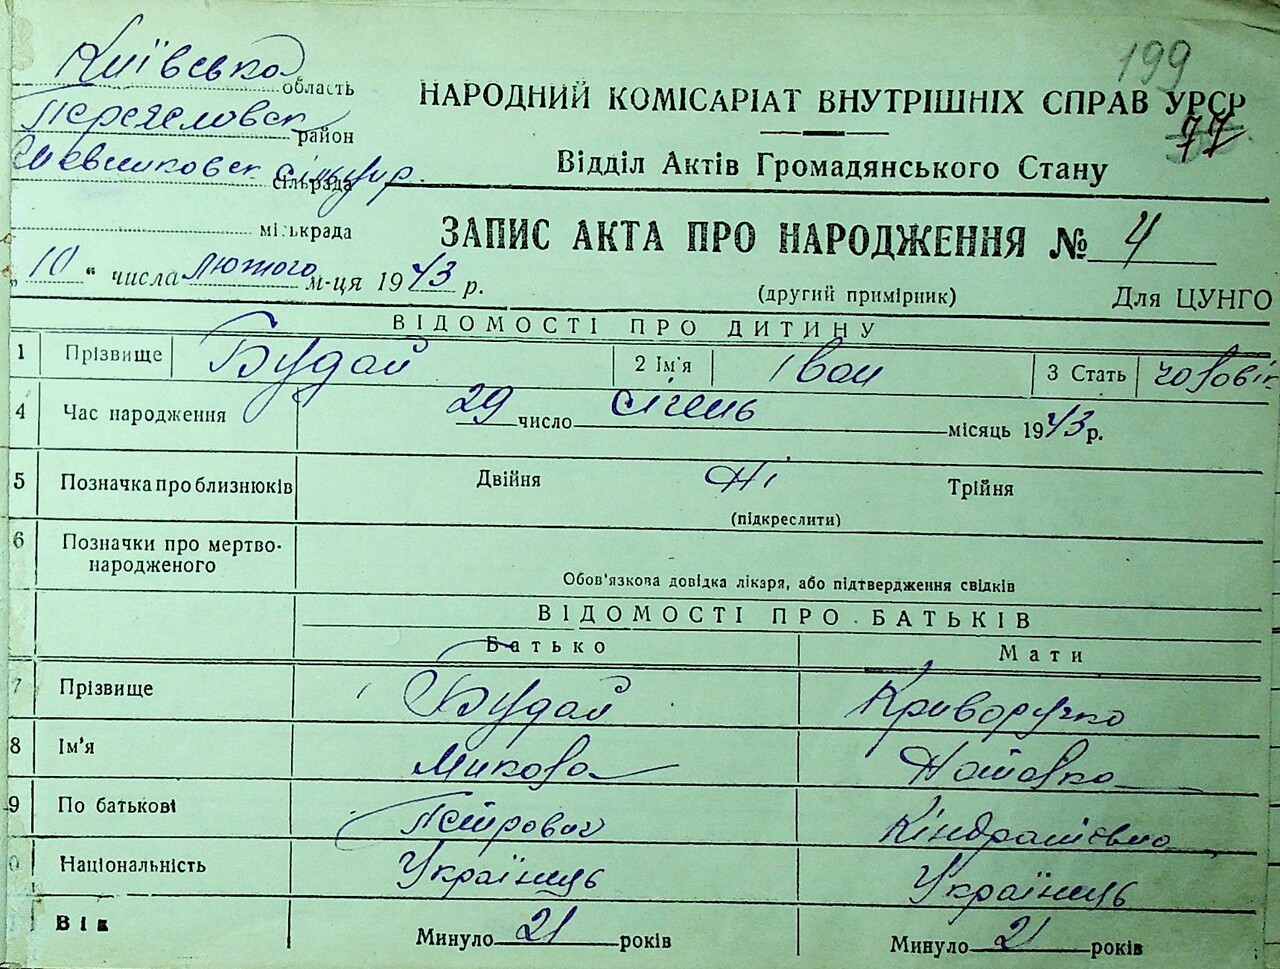 199
Київська область
Переяславск район
сільрада
мількрада
НАРОДНИЙ КОМІСАРІАТ ВНУТРІШНІХ СПРАВ УРСР
77
Відділ Актів Громадянського Стану
ЗАПИС АКТА ПРО НАРОДЖЕННЯ № 4
„10“ числа лютого м-ця 1943 р.
(другий примірник) Для ЦУНГО
ВІДОМОСТІ ПРО ДИТИНУ
1 Прізвище Будай 2 Ім'я Іван 3 Стать чоловік
4 Час народження 29 число січень місяць 1943 р.
5 Позначка про близнюків Двійня Ні Трійня
(підкреслити)
6 Позначки про мертво-
народженого
Обов'язкова довідка лікаря, або підтвердження свідків
ВІДОМОСТІ ПРО БАТЬКІВ
Батько Мати
7 Прізвище Будай Криворучко
8 Ім'я Микола Наталка
9 По батькові Петрович Кіндратівна
0 Національність Українець Українець
Вік Минуло 21 років Минуло 21 років